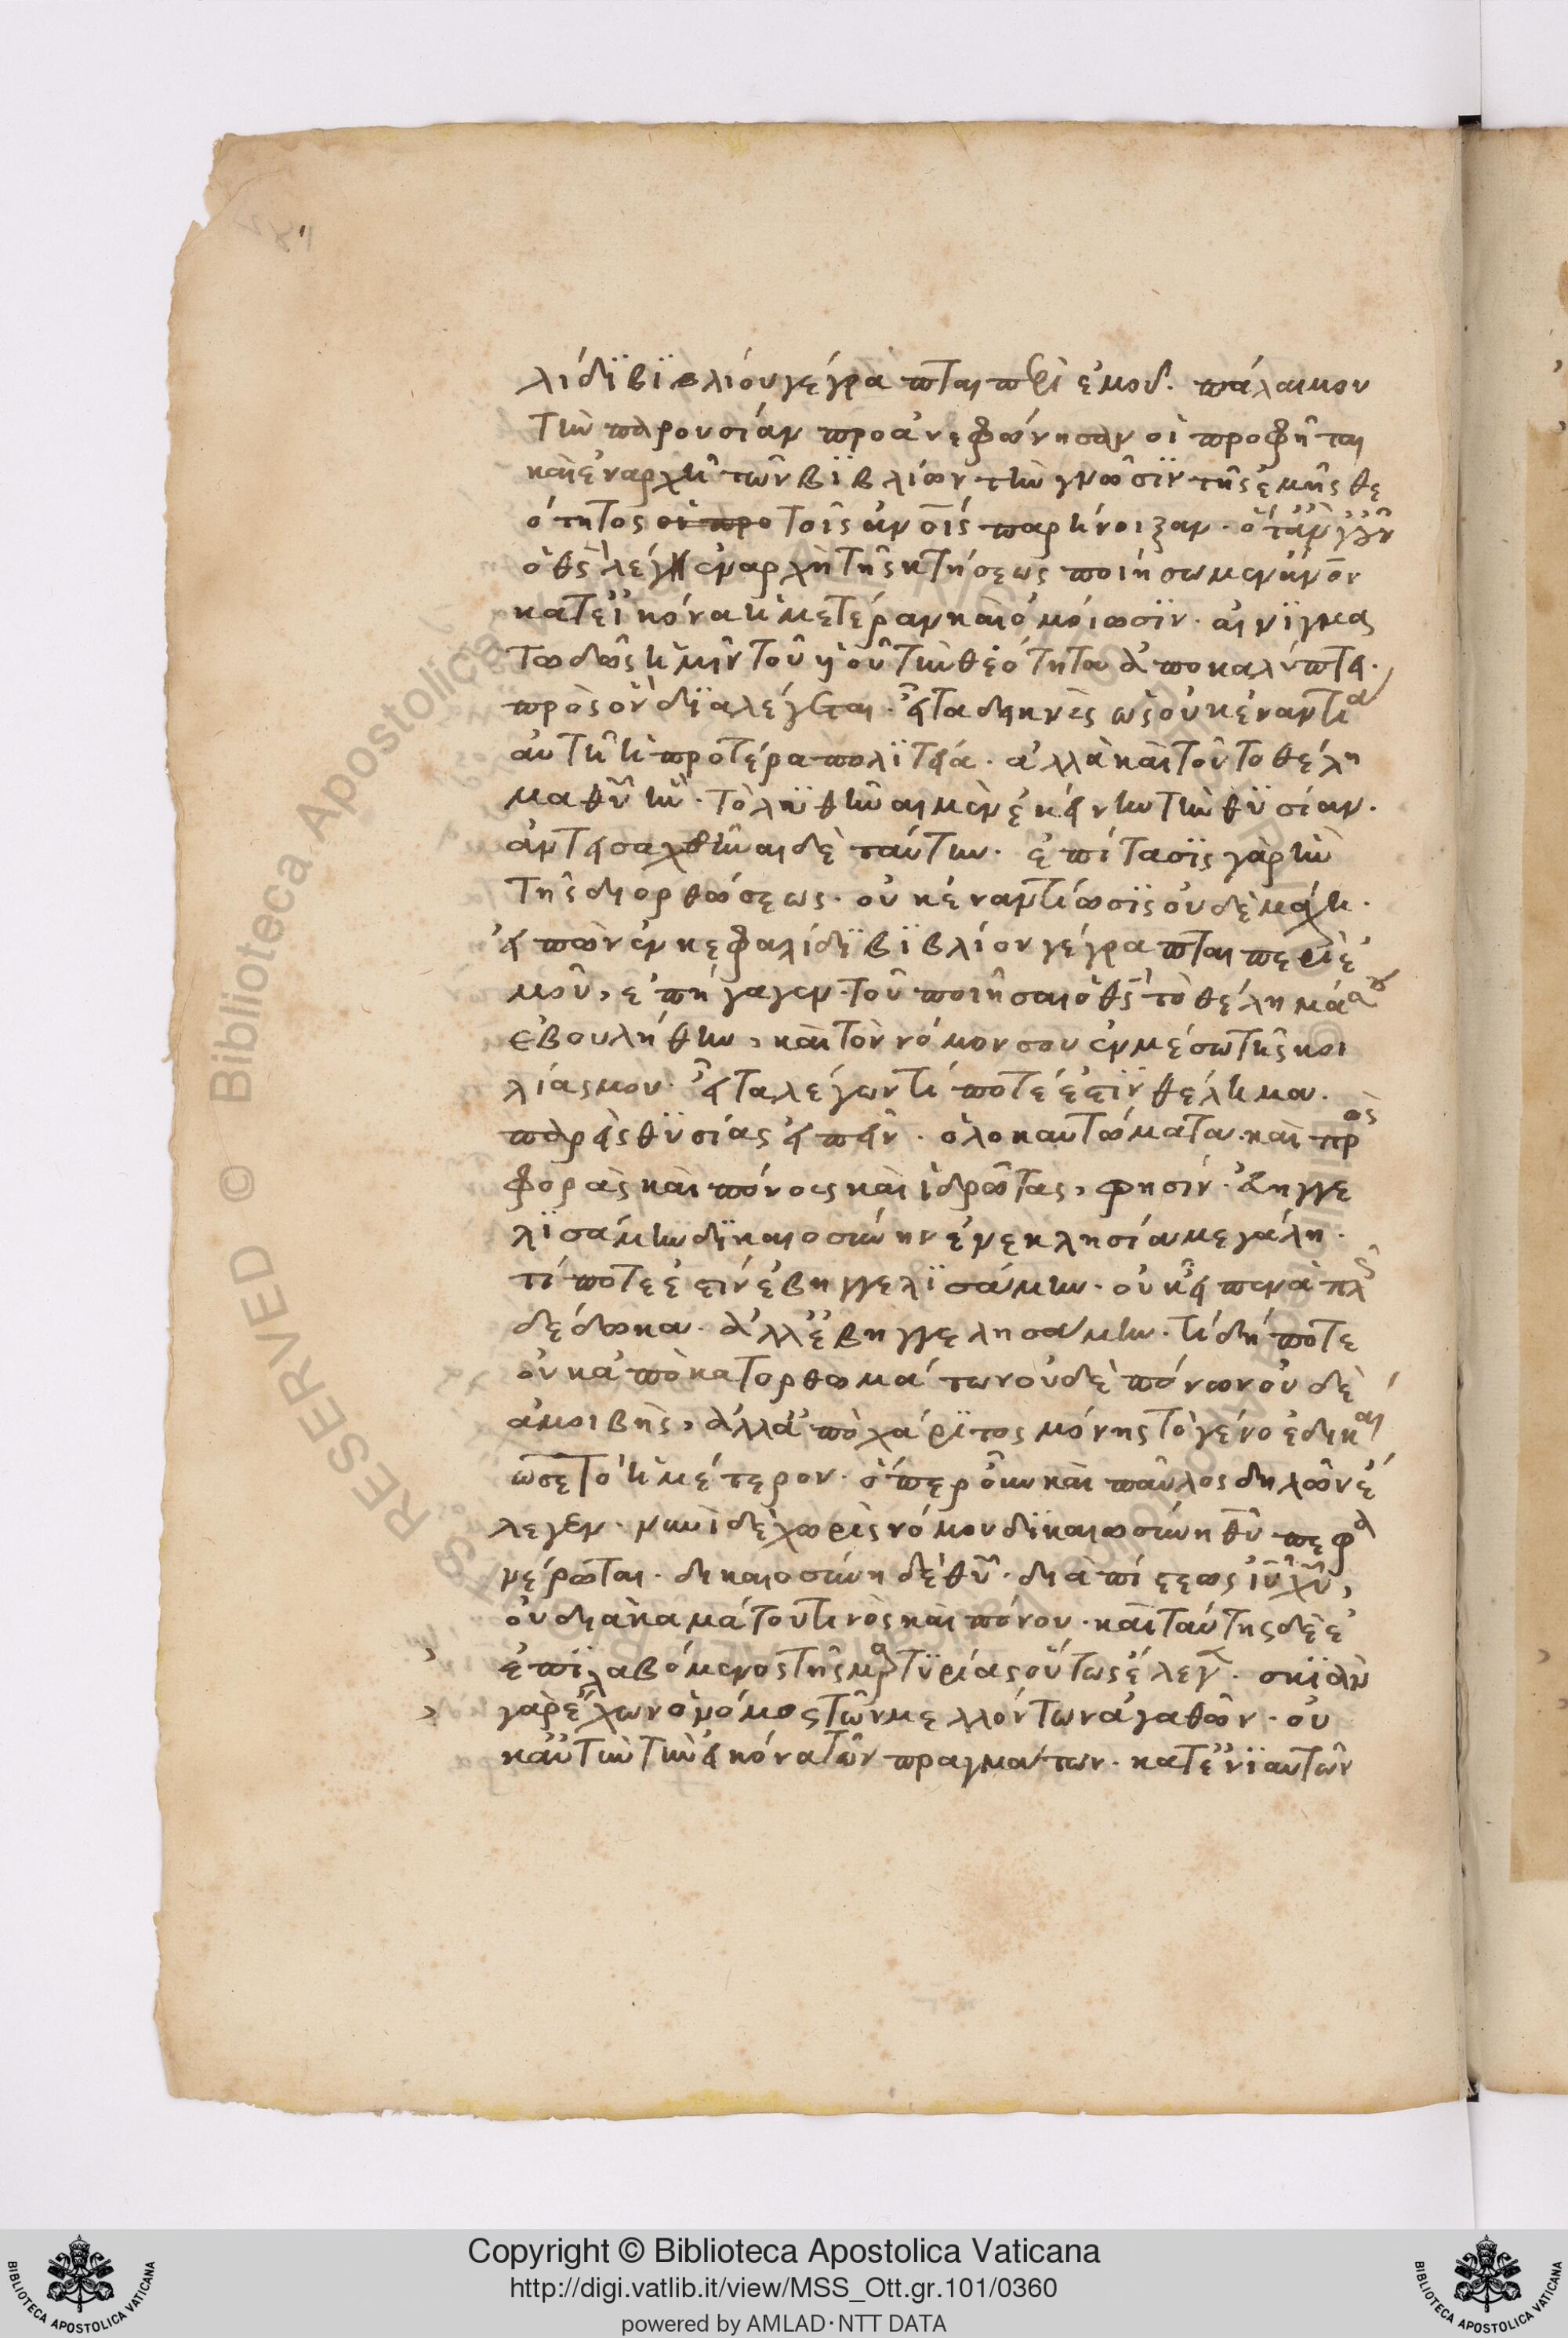 λίδϊ βϊβλίου γέγραπται περὶ ἐμοῦ. πάλαι μου
τὴν παρουσίαν προἀνεφώνησαν οἱ προφῆται
καὶ ἐν ἀρχῆ τῶν βϊβλίων τὴν γνῶσϊν τῆς ἐμῆς θε
ότητος οἱ προ τοῖς ἀνοις παρήνοιξαν. ὅταν γοῦν
ὁ θς λέγη ἐν ἀρχὴ τῆς κτήσεως ποιήσωμεν ἀνον
κατ εἰκόνα ἡμετέραν καὶ ὁμοίωσϊν. αἰνϊγμα
τωδῶς ἡμῖν τοῦ υἱοῦ τὴν θεότητα ἀποκαλύπτει.
πρὸς ὃν δϊαλέγεται. εἶτα δηκνὺς ὡς οὐκ ἐναντία
αὐτῆ ἡ προτέρα πολϊτεία. ἀλλὰ καὶ τοῦτο θέλη
μα θῦ ἦν. τὸ λϋθῆναι μὲν ἐκείνην τὴν θϋσίαν.
ἀντεισαχθῆναι δὲ ταύτην. ἐπίτασϊς γὰρ ἦν
τῆς διορθώσεως. οὐκ ἐναντίωσϊς οὐδὲ μάχη.
εἰπὼν ἐν κεφαλίδϊ βϊβλίον γέγραπται περὶ ἐ
μοῦ, ἐπήγαγεν. τοῦ ποιῆσαι ὁ θς τὸ θέλημά σου
ἐβουλήθην, καὶ τὸν νόμον σου ἐν μέσω τῆς κοι
λίας μου. εἶτα λέγων τί ποτέ ἐστϊν θέλημα.
παρεὶς θϋσίας εἰπεῖν. ὁλοκαυτώματα. καὶ προς
φορὰς καὶ πόνους καὶ ἱδρῶτας, φησίν. εὐηγγε
λϊσάμην δϊκαιοσύνην ἐν ἐκκλησία μεγάλη.
τί ποτε ἐστίν εὐηγγελϊσάμην. οὐκ εἶπεν ἁπλῶς
δέδωκα. ἀλλ εὐηγγελησάμην. τί δή ποτε
οὐκ ἀπὸ κατορθωμάτων οὐδὲ πόνων οὐδὲ
ἀμοιβῆς, ἀλλ ἀπὸ χάρϊτος μόνης τὸ γένο ἐδικαί
ωσε τὸ ἡμέτερον. ὅπερ οὖν καὶ παῦλος δηλῶν ἔ
λεγεν. νυνὶ δὲ χωρὶς νόμου δϊκαιωσύνη θῦ πεφα
νέρωται. δηκαιοσύνη δὲ θῦ. διὰ πίστεως ιῦ χῦ,
οὐ διὰ καμάτου τινὸς καὶ πόνου. καὶ ταύτης δὲ ἐ
ἐπϊλαβόμενος τῆς μαρτϋρίας οὕτως ἔλεγεν. σκϊὰν
γὰρ ἔχων ὁ νόμος τῶν μελλόντων ἀγαθῶν. οὐ
κ αὐτὴν τὴν εἰκόνα τῶν πραγμάτων. κατ ἐνϊαυτὸν
Copyright © Biblioteca Apostolica Vaticana
http://digi.vatlib.it/view/MSS_Ott.gr.101/0360
powered by AMLAD·NTT DATA